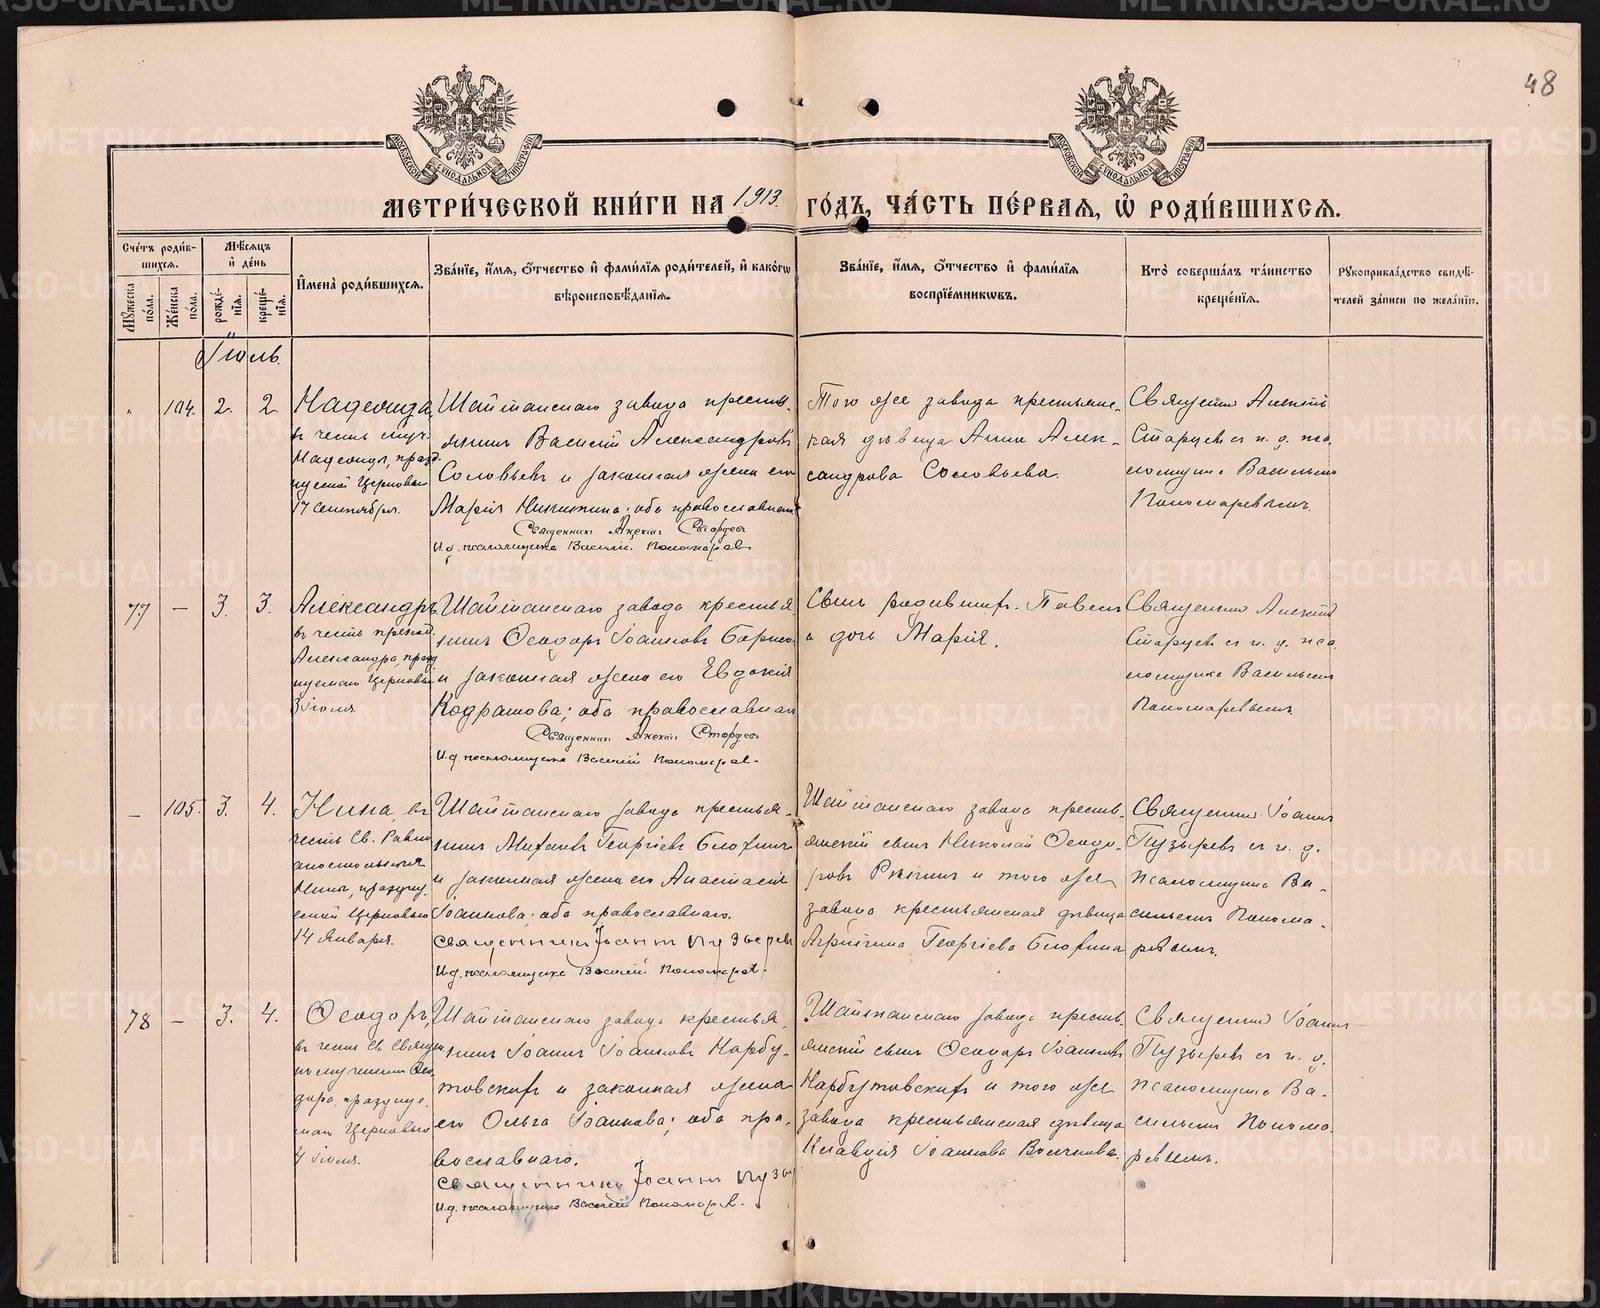 48
МЕТРИ́ЧЕСКОЙ КНИ́ГИ НА 1913. ГО́ДЪ, ЧА́СТЬ ПЕ́РВАЯ, Ѡ҆ РОДИ́ВШИХСЯ.
Сче́тъ роди́в-
шихся.
Мꙋ́жеска по́ла.
Же́нска по́ла.
Мѣ́сяцъ
и҆ де́нь
рожде́-
нїя.
креще́-
нїя.
И҆мена̀ роди́вшихся.
Зва́нїе, и҆́мя, ѻ҆́тчество и҆ фами́лїя роди́телей, и҆ како́гѡ
вѣроисповѣ́данїя.
Зва́нїе, и҆́мя, ѻ҆́тчество и҆ фами́лїя
воспрїе́мниковъ.
Кто̀ соверша́лъ та́инство
креще́нїя.
Рꙋкоприкла́дство свидѣ́-
телей за́писи по жела́нїю.
Іюль.
104. 2. 2.
Надежда,
въ честь муч.
Надежды, празд.
цумой Церковью
17 Сентября.
Шайтанскаго завода кресть-
янинъ Василій Александровъ
Соловьевъ и законная жена его
Марія Никитина; оба православнаго
Священникъ Алексій Старцевъ
И.д. псаломщика Василій Пономарев
Того же завода крестьянс-
кая дѣвица Анна Алек-
сандрова Соловьева.
Священник Алексѣй
Старцевъ съ и. д. пса
ломщика Васильемъ
Пономаревымъ.
77 — 3. 3.
Александръ
въ честь препод.
Александра, празд
нуемаго Церковью
3 Іюля.
Шайтанскаго завода крестья-
нинъ Ѳеодоръ Іоанновъ
и законная жена его Евдокія
Кодратова; оба православнаго
Священник Алексій Старцевъ
И.д. псаломщика Василій Пономарев.
Сынъ родившихъ Павелъ
и дочь Марія.
Священник Алексѣй
Старцевъ съ и. д. пса
ломщика Васильемъ
Пономаревымъ.
— 105. 3. 4.
Нина, въ
честь Св. Равно
апостольныя
Нины, празднуе
мой Церковью
14 Января.
Шайтанскаго завода крестья-
нинъ Георгіевъ
и законная жена его Анастасія
Іоаннова; оба православнаго.
Священникъ Іоаннъ Пузыревъ
И.д. псаломщика Василій Пономарев.
Шайтанскаго завода кресть-
янскій сынъ Николай Ѳеодо-
ровъ и того же
завода крестьянская дѣвица
Георгіева
Священник Іоаннъ
Пузыревъ съ и. д.
псаломщика Ва-
сильемъ Понома-
ревымъ.
78 — 3. 4.
Ѳеодоръ,
въ честь Св. Священ
номученика Ѳео
дора, празднуе-
маго Церковью
4 Іюля.
Шайтанскаго завода крестья-
нинъ Іоаннъ Іоанновъ Нарбу-
товскихъ и законная жена
его Ольга Іоаннова; оба пра-
вославнаго.
Священникъ Іоаннъ Пузы
И.д. псаломщика Василій Пономарев.
Шайтанскаго завода кресть-
янскій сынъ Ѳеодоръ Іоанновъ
Нарбутовскихъ и того же
завода крестьянская дѣвица
Клавдія Іоаннова
Священник Іоаннъ
Пузыревъ съ и. д.
псаломщика Ва-
сильемъ Понома
ревымъ.